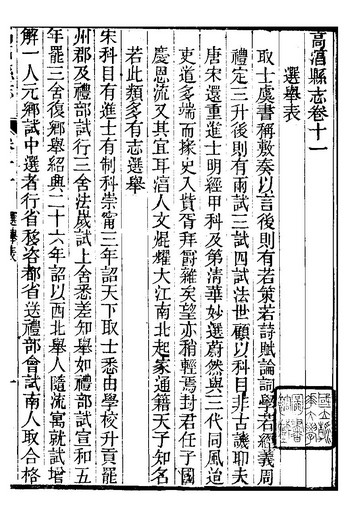 高淳縣志卷十一
選舉表
取士虞書稱敷奏以言後則有若策若詩賦論詞學若經義周
禮定三升後則有兩試三試四試法世顧以科目非古議聊夫
唐宋還重進士明經甲科及第清華妙選蔚然與三代同風迨
吏道多端而掾史入貲胥拜爵雜矣望亦稍輕焉封君任子國
慶恩流又其宜耳淯人文焜燿大江南北起家通籍天子知名
若此類多有志選舉
宋科目有進士有制科崇甯三年詔天下取士悉由學校升貢罷
州郡及禮部試行三舍法歲試上舍悉差知舉如禮部試宣和五
年罷三舍復鄉舉紹興二十六年詔以西北舉人隨流寓就試增
解一人元鄉試中選者行省移咨都省送禮部會試南人取合格